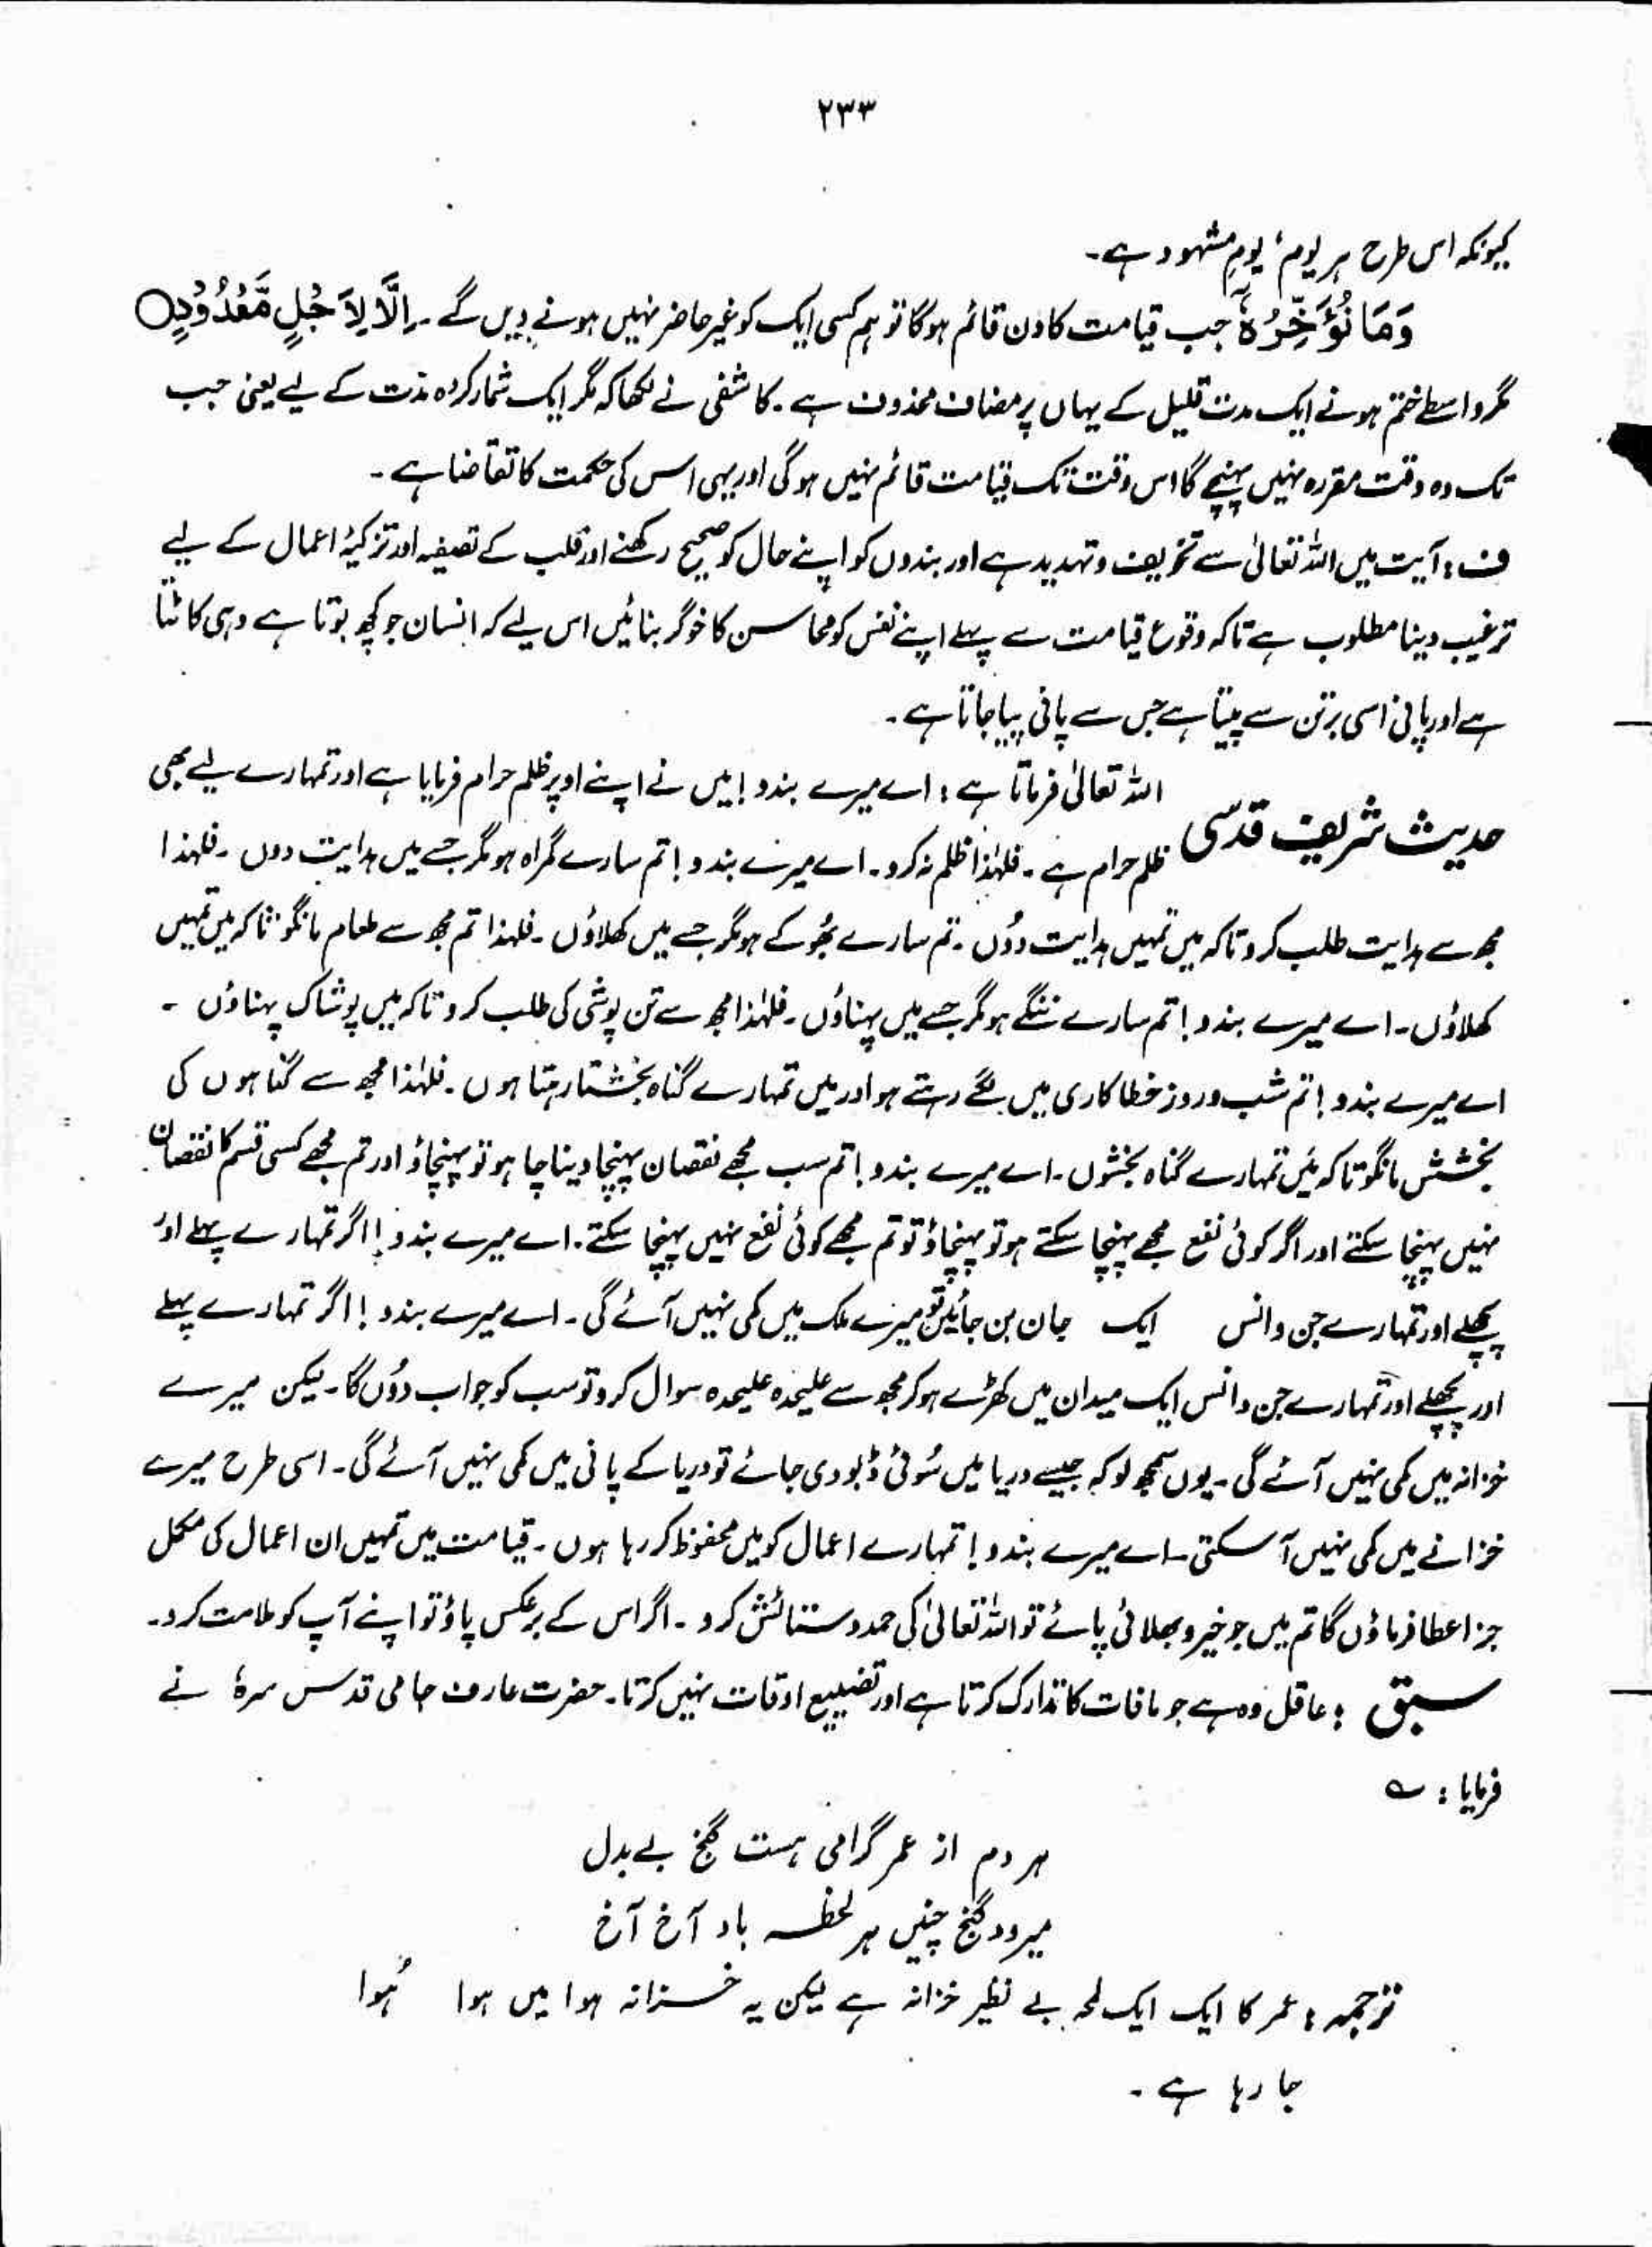 ۲۳۳
کیونکہ اس طرح ہر یوم، یومِ مشہود ہے۔
وَمَا نُؤَخِّرُہٗٓ جب قیامت کا دن قائم ہوگا تو ہم کسی ایک کو غیر حاضر نہیں ہونے دیں گے ۔ اِلَّا لِاَجَلٍ مَّعْدُوْدٍ○
مگر واسطے ختم ہونے ایک مدت قلیل کے یہاں پر مضاف محذوف ہے۔ کاشفی نے لکھا کہ مگر ایک شمار کردہ مدت کے لیے یعنی جب
تک وہ وقت مقررہ نہیں پہنچے گا اس وقت تک قیامت قائم نہیں ہوگی اور یہی اس کی حکمت کا تقاضا ہے ۔
ف : آیت میں اللہ تعالیٰ سے تخویف و تہدید ہے اور بندوں کو اپنے حال کو صحیح رکھنے اور قلب کے تصفیہ اور تزکیۂ اعمال کے لیے
ترغیب دینا مطلوب ہے تاکہ وقوع قیامت سے پہلے اپنے نفس کو محاسن کا خوگر بنائیں اس لیے کہ انسان جو کچھ بوتا ہے وہی کاٹتا
ہے اور پانی اسی برتن سے پیتا ہے جس سے پانی پیا جاتا ہے ۔
حدیث شریف قدسی اللہ تعالیٰ فرماتا ہے : اے میرے بندو ! میں نے اپنے اوپر ظلم حرام فرمایا ہے اور تمہارے لیے بھی
ظلم حرام ہے ۔ فلہٰذا ظلم نہ کرو۔ اے میرے بندو ! تم سارے گمراہ ہو مگر جسے میں ہدایت دوں ۔ فلہذا
مجھ سے ہدایت طلب کرو تاکہ میں تمہیں ہدایت دوُں ۔ تم سارے بھُوکے ہو مگر جسے میں کھلاؤں ۔ فلہذا تم مجھ سے طعام مانگو تاکہ میں تمہیں
کھلاؤں۔ اے میرے بندو ! تم سارے ننگے ہو مگر جسے میں پہناؤں۔ فلہٰذا مجھ سے تن پوشی کی طلب کرو تاکہ میں پوشاک پہناؤں ۔
اے میرے بندو ! تم شب و روز خطا کاری میں لگے رہتے ہو اور میں تمہارے گناہ بخشتا رہتا ہوں ۔ فلہٰذا مجھ سے گناہوں کی
بخشش مانگو تاکہ میَں تمہارے گناہ بخشوں۔ اے میرے بندو ! تم سب مجھے نقصان پہنچا دینا چاہو تو پہنچاؤ اور تم مجھے کسی قسم کا نقصان
نہیں پہنچا سکتے اور اگر کوئی نفع مجھے پہنچا سکتے ہو تو پہنچاؤ تو تم مجھے کوئی نفع نہیں پہنچا سکتے۔ اے میرے بندو ! اگر تمہارے پہلے اور
پچھلے اور تمہارے جن و انس ایک جان بن جائیں تو میرے ملک میں کمی نہیں آئے گی ۔ اے میرے بندو ! اگر تمہارے پہلے
اور پچھلے اور تمہارے جن و انس ایک میدان میں کھڑے ہو کر مجھ سے علیحدہ علیحدہ سوال کرو تو سب کو جواب دوُں گا ۔ لیکن میرے
خزانہ میں کمی نہیں آئے گی ۔ یوں سمجھ لو کہ جیسے دریا میں سُوئی ڈبو دی جائے تو دریا کے پانی میں کمی نہیں آئے گی۔ اسی طرح میرے
خزانے میں کمی نہیں آسکتی ۔ اے میرے بندو ! تمہارے اعمال کو میں محفوظ کر رہا ہوں ۔ قیامت میں تمہیں ان اعمال کی مکمل
جزا عطا فرماؤں گا تم میں جو خیر و بھلائی پائے تو اللہ تعالیٰ کی حمد و ستائش کرو ۔ اگر اس کے برعکس پاؤ تو اپنے آپ کو ملامت کرو۔
سبق : عاقل وہ ہے جو مافات کا تدارک کرتا ہے اور تضییع اوقات نہیں کرتا۔ حضرت عارف جامی قدس سرہٗ نے
فرمایا : ؎
ہر دم از عمر گرامی ہست گنج بے بدل
میرود گنج چنیں ہر لحظہ باد آخ آخ
ترجمہ : عمر کا ایک ایک لمحہ بے نظیر خزانہ ہے لیکن یہ خزانہ ہوا میں ہوا ہُوا
جا رہا ہے ۔